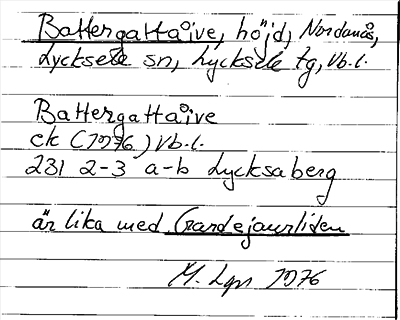 Battergattåive, höjd, Nordanås,
Lycksele sn, Lycksele tg, Vb.l.
Battergattåive
ek (1976) Vb.l.
231 2-3 a-b Lycksaberg
är lika med Gardejaurliden
M. Lgn 1976